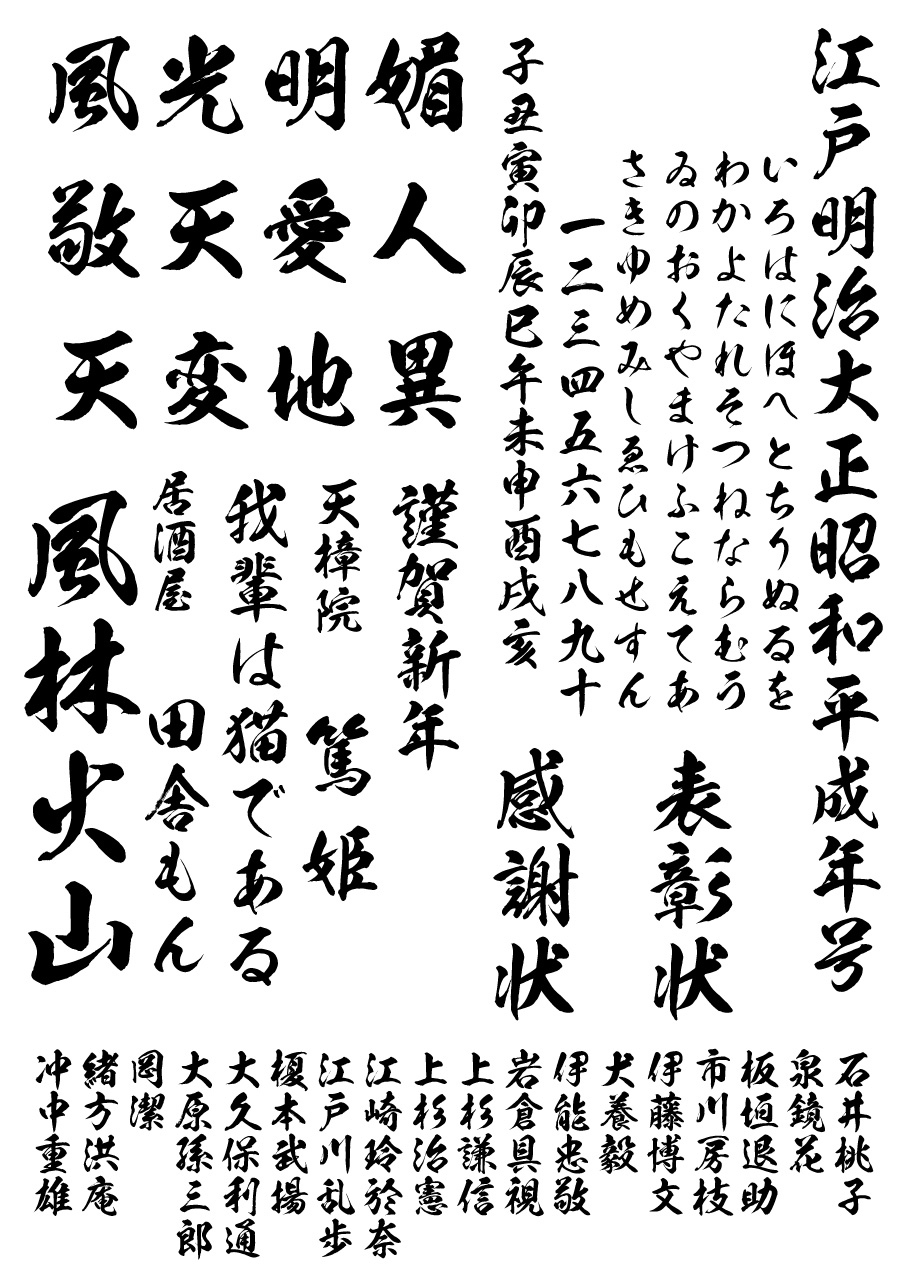 江戸明治大正昭和平成年号
いろはにほへとちりぬるを
わかよたれそつねならむう
ゐのおくやまけふこえてあ
さきゆめみしゑひもせすん
一二三四五六七八九十
子丑寅卯辰巳午未申酉戌亥
表彰状
感謝状
媚人異
明愛地
光天変
風敬天
謹賀新年
天樟院
篤姫
我輩は猫である
居酒屋
田舎もん
風林火山
石井桃子
泉鏡花
板垣退助
市川房枝
伊藤博文
犬養毅
伊能忠敬
岩倉具視
上杉謙信
上杉治憲
江崎玲於奈
江戸川乱歩
榎本武揚
大久保利通
大原孫三郎
岡潔
緒方洪庵
冲中重雄